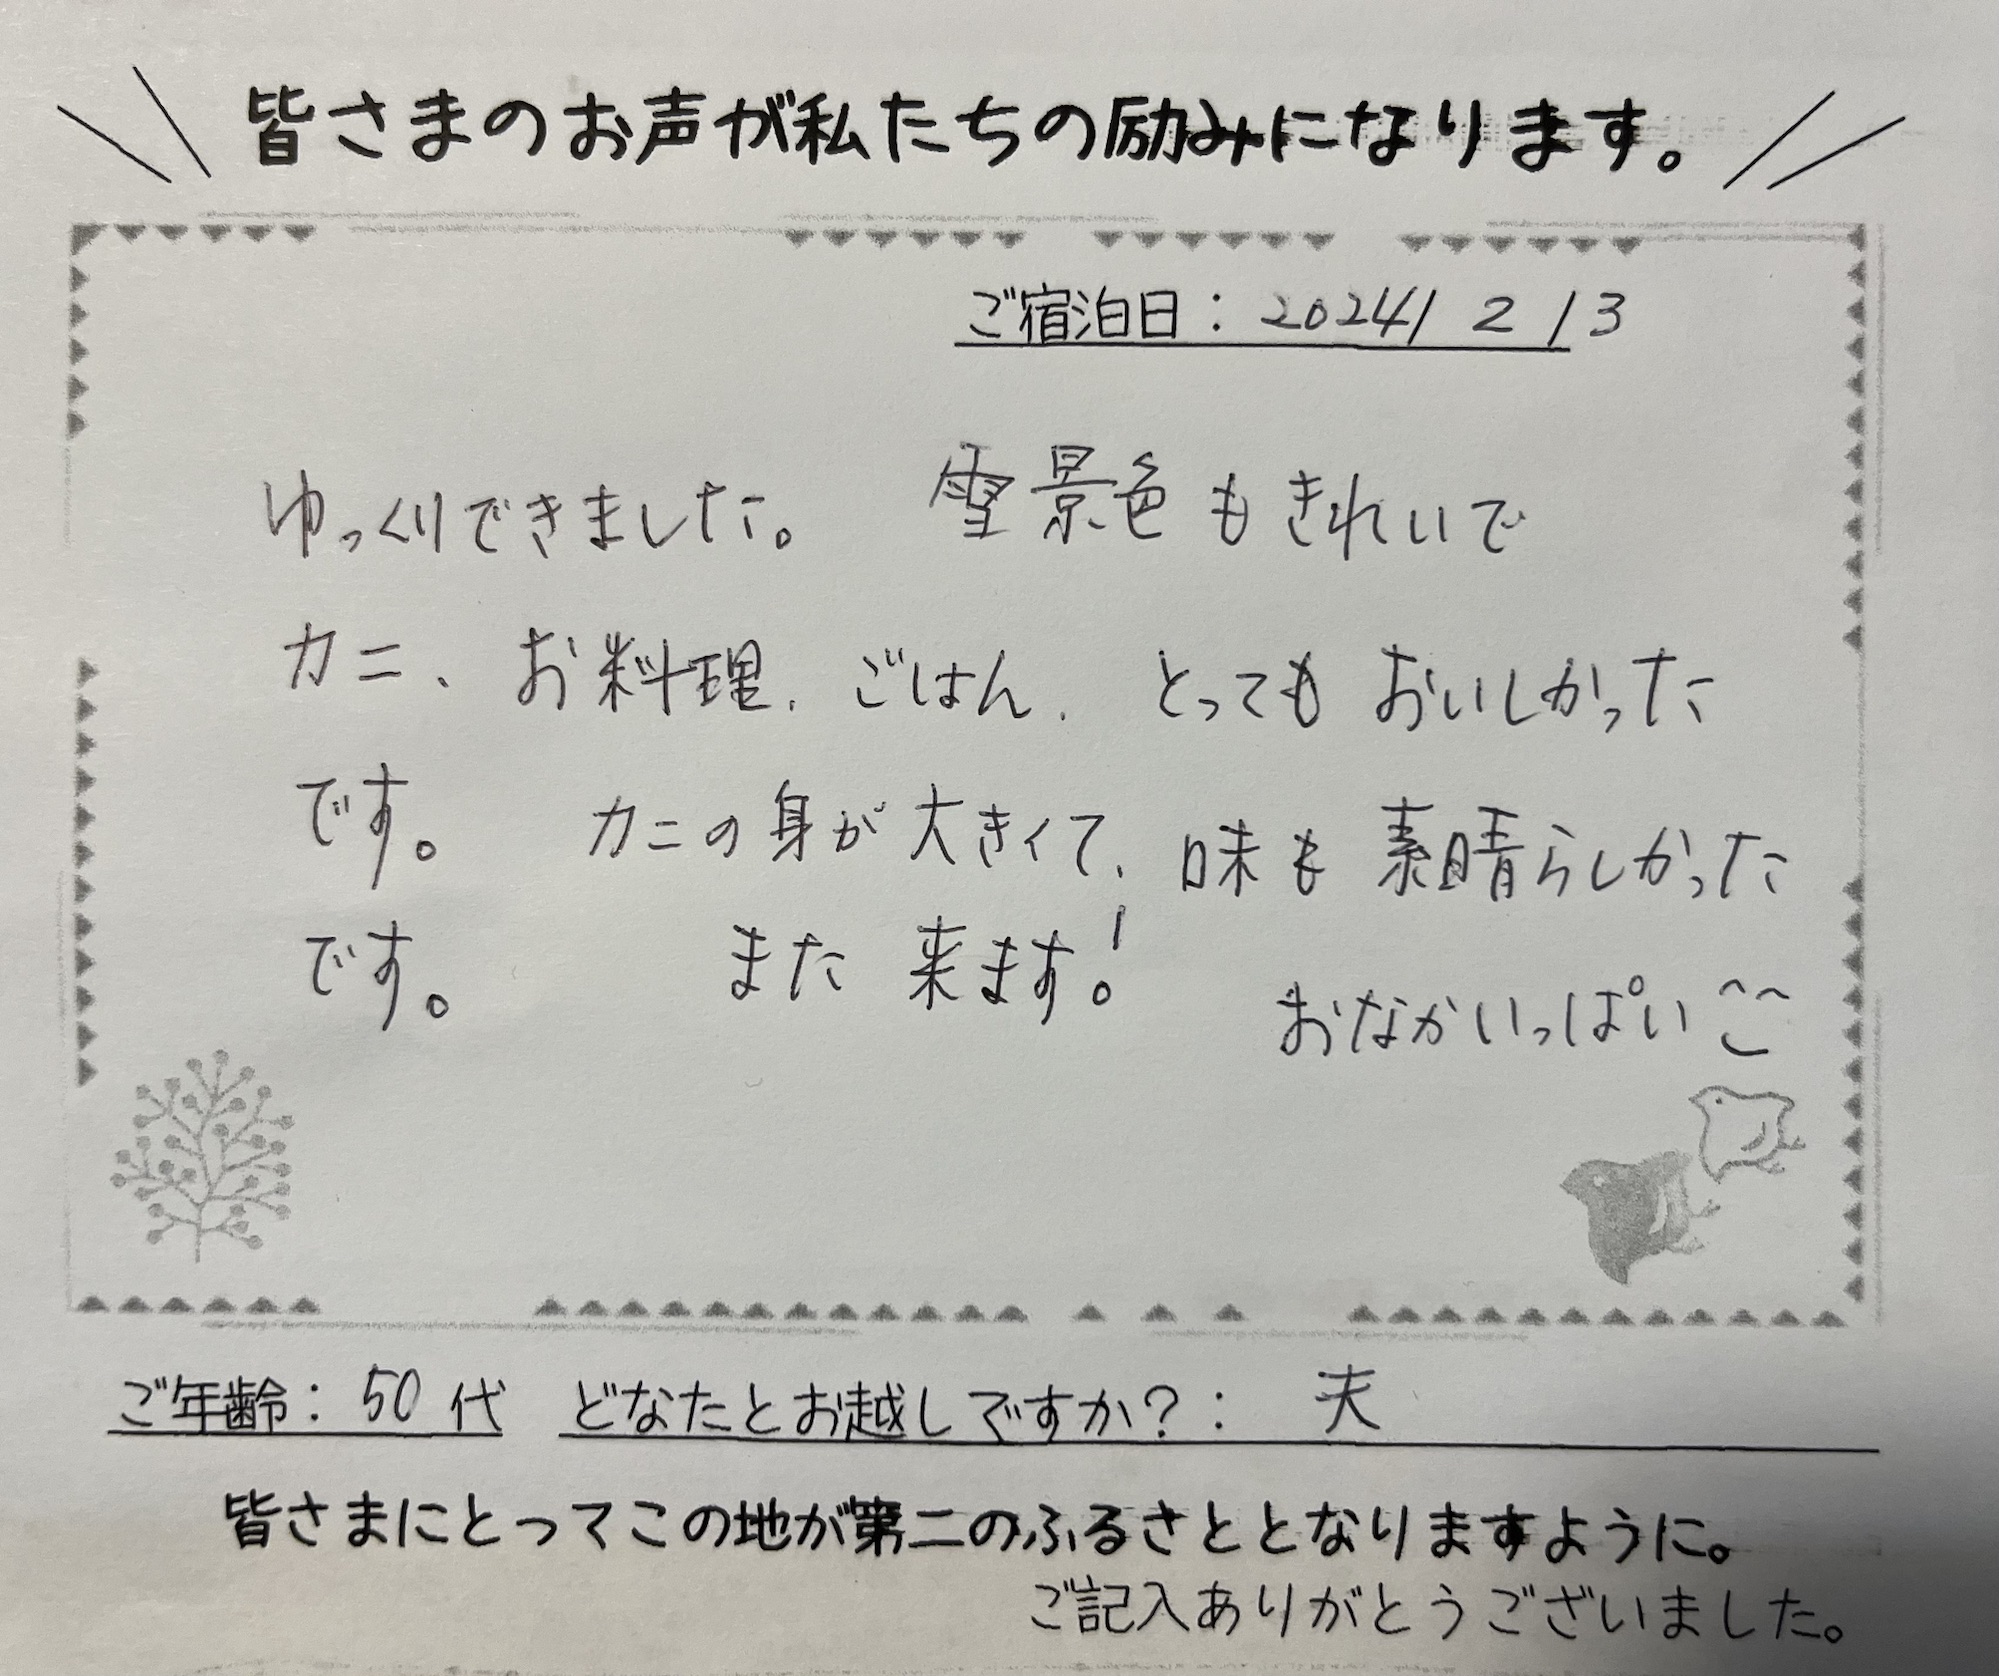 皆さまのお声が私たちの励みになります。
ご宿泊日：2024/ 2 /3
ゆっくりできました。 雪景色もきれいで
カニ、お料理、ごはん、とってもおいしかった
です。 カニの身が大きくて、味も素晴らしかった
です。 また来ます!
おなかいっぱい
ご年齢：50代 どなたとお越しですか？： 夫
皆さまにとってこの地が第二のふるさととなりますように。
ご記入ありがとうございました。